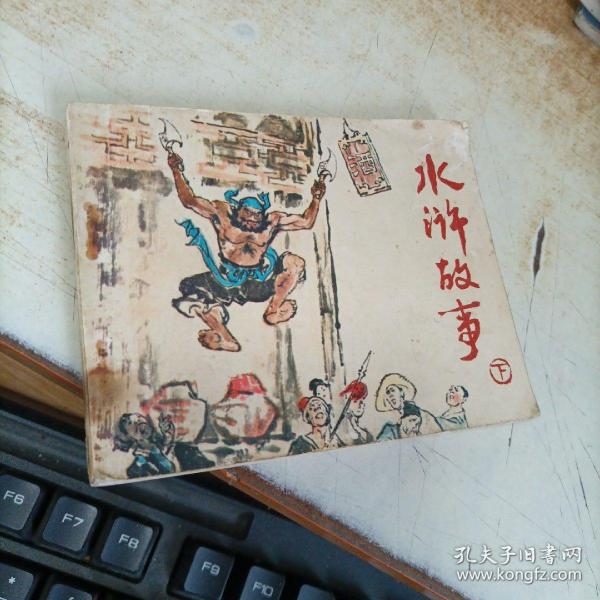 水浒故事
下
酒
F6
F7
F8
F9
F10
*
(
孔夫子旧书网
www.kongfz.com